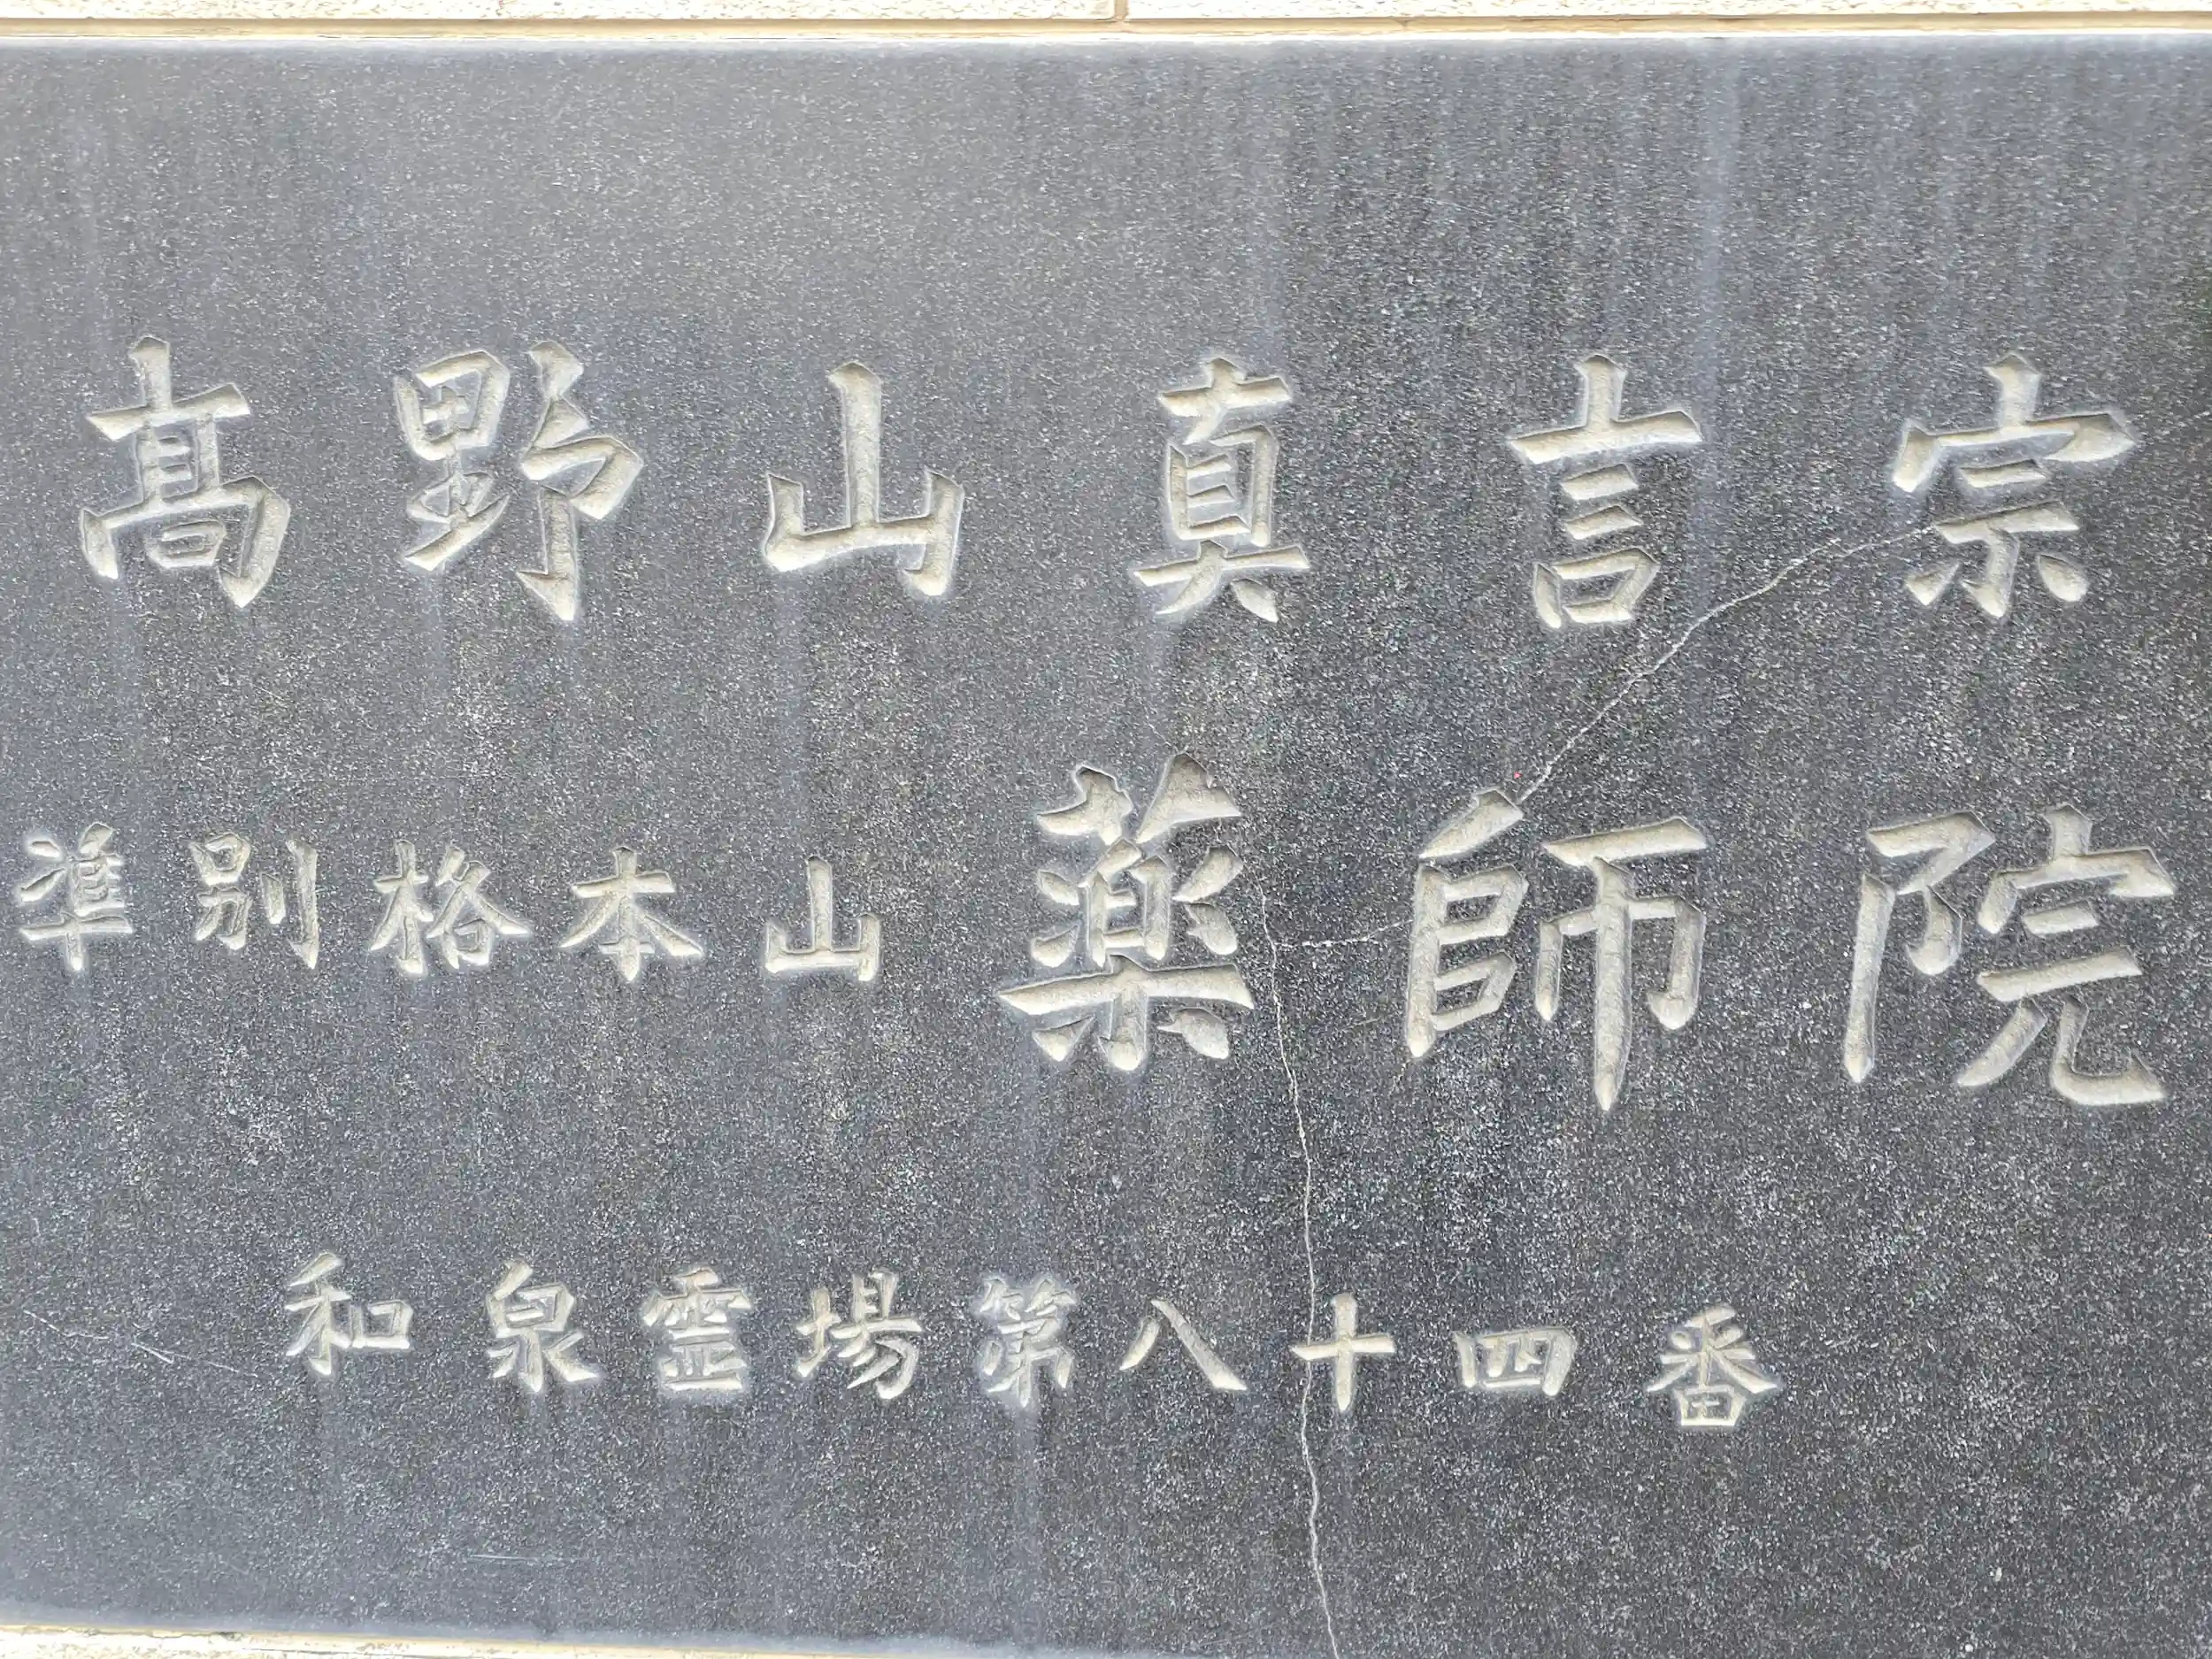 髙野山真言宗
準別格本山薬師院
和泉霊場第八十四番